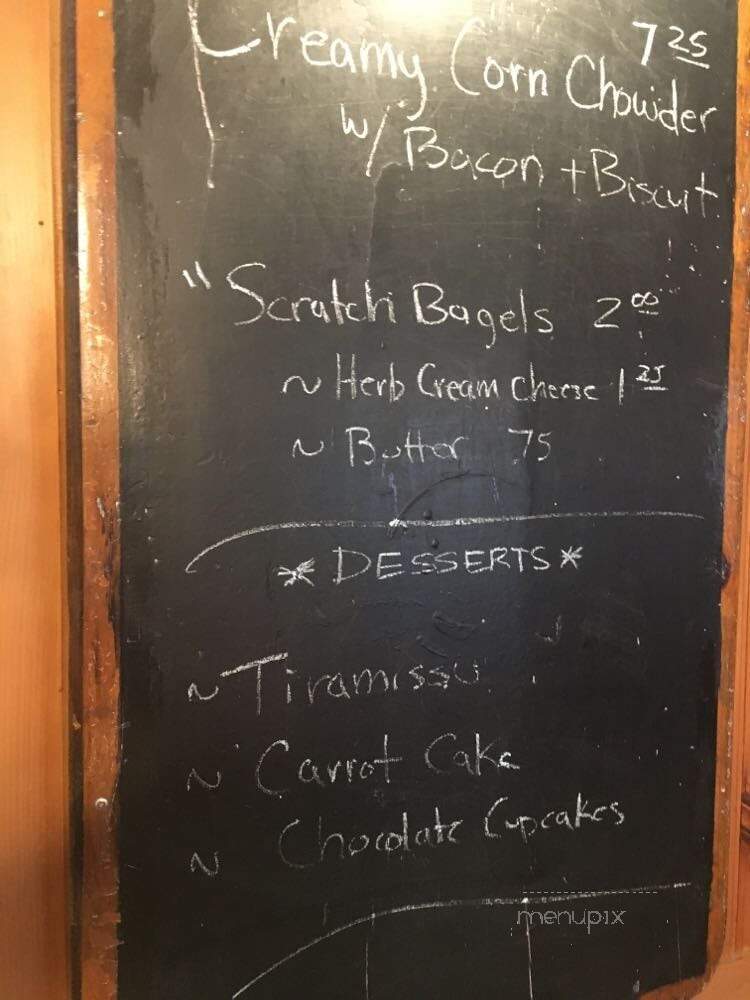 Creamy Corn Chowder 7 25
w/ Bacon + Biscuit
"Scratch Bagels 2 00
~ Herb Cream Cheese 1 25
~ Butter 75
* DESSERTS *
~ Tiramissu
~ Carrot Cake
~ Chocolate Cupcakes
menupix